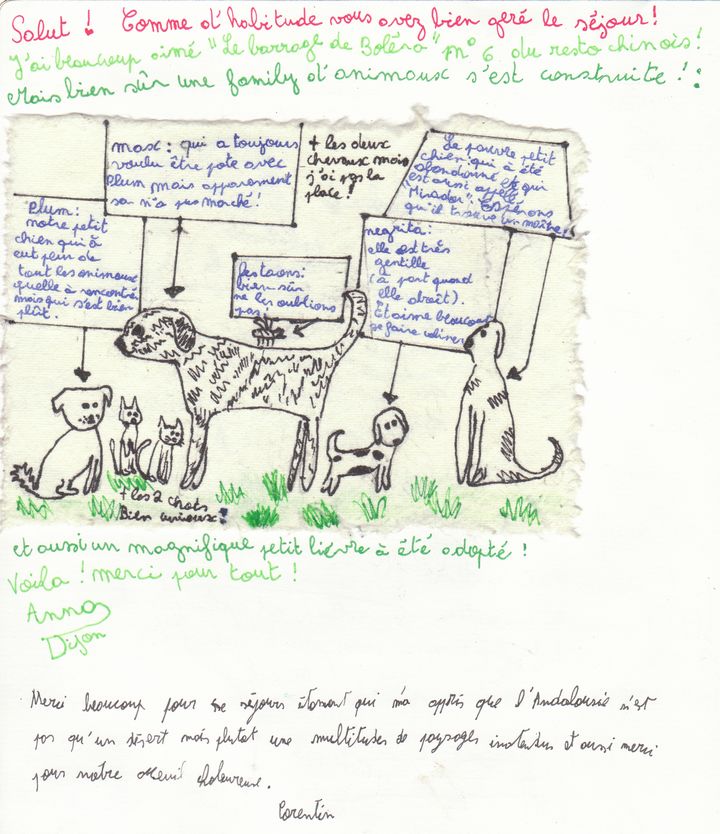 Salut ! Comme d'habitude vous avez bien géré le séjour !
J'ai beaucoup aimé "Le barrage de Boléro" n° 6 du resto chinois !
Mais bien sûr une family d'animaux s'est construite ! :
max : qui a toujours
voulu être pote avec
Plum mais apparament
sa n'a pas marché !
+ les deux
chevaux mais
j'ai pas la
place !
Le pauvre petit
chien qui a été
abandonné et qui
est aussi appelé
"Mirador". Espérons
qu'il trouve un maître !
Plum :
notre petit
chien qui à
eut peur de
tout les animaux
quelle à rencontrés
mais qui s'est bien
plût.
les taons :
bien sûr
ne les oublions
pas !
negrita :
elle est très
gentille
(à part quand
elle aboit).
Et aime beaucoup
se faire caliner
+ les 2 chats
Bien curieux !
et aussi un magnifique petit lièvre à été adopté !
Voila ! merci pour tout !
Anna
Dijon
Merci beaucoup pour ce séjours étonant qui m'a appris que l'Andalousie n'est
pas qu'un désert mais plutot une multitudes de paysages inatendus et aussi merci
pour notre acceuil chaleureuse.
Corentin